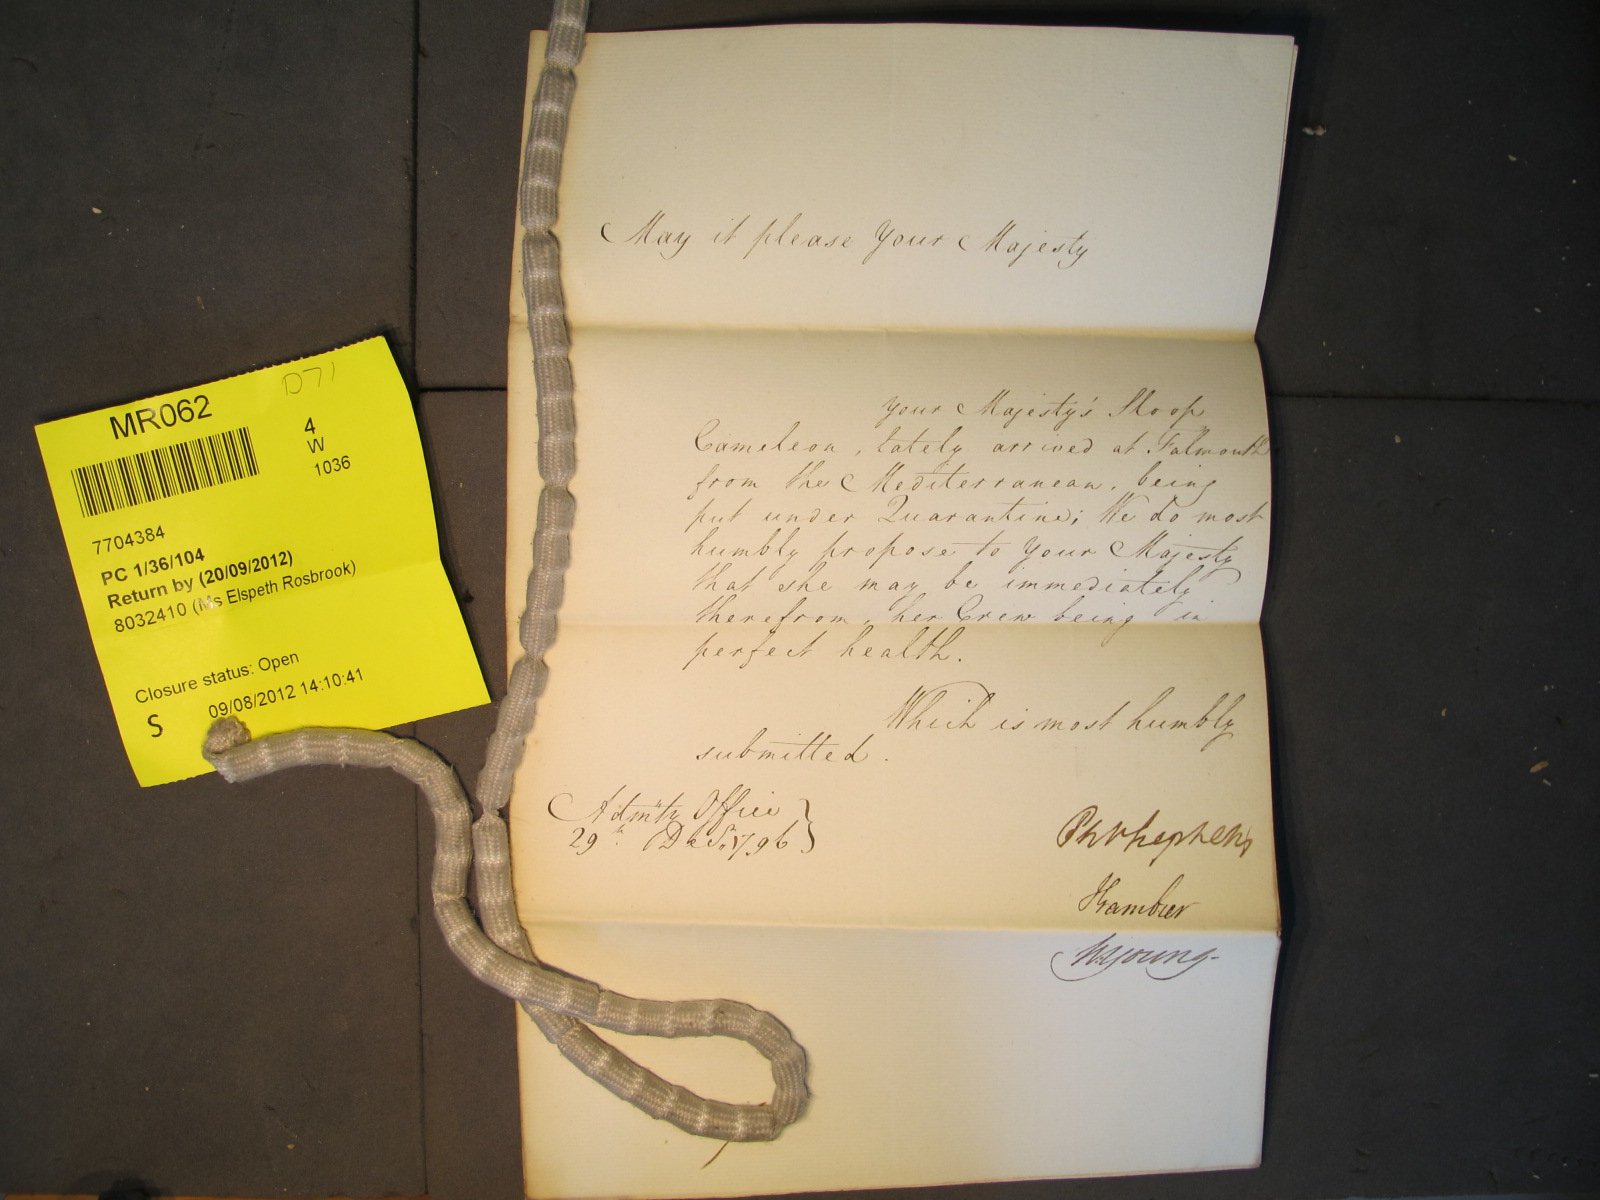 May it please Your Majesty
Your Majesty's Sloop
Cameleon, lately arrived at Falmouth
from the Mediterranean, being
put under Quarantine; We do most
humbly propose to Your Majesty
that she may be immediately
therefrom, her Crew being in
perfect health.
Which is most humbly
submitted.
Admty Office
29th Decr. 1796
Ph Stephens
J Gambier
W Young
D71
MR062
4
W
1036
7704384
PC 1/36/104
Return by (20/09/2012)
8032410 (Ms Elspeth Rosbrook)
Closure status: Open
S 09/08/2012 14:10:41